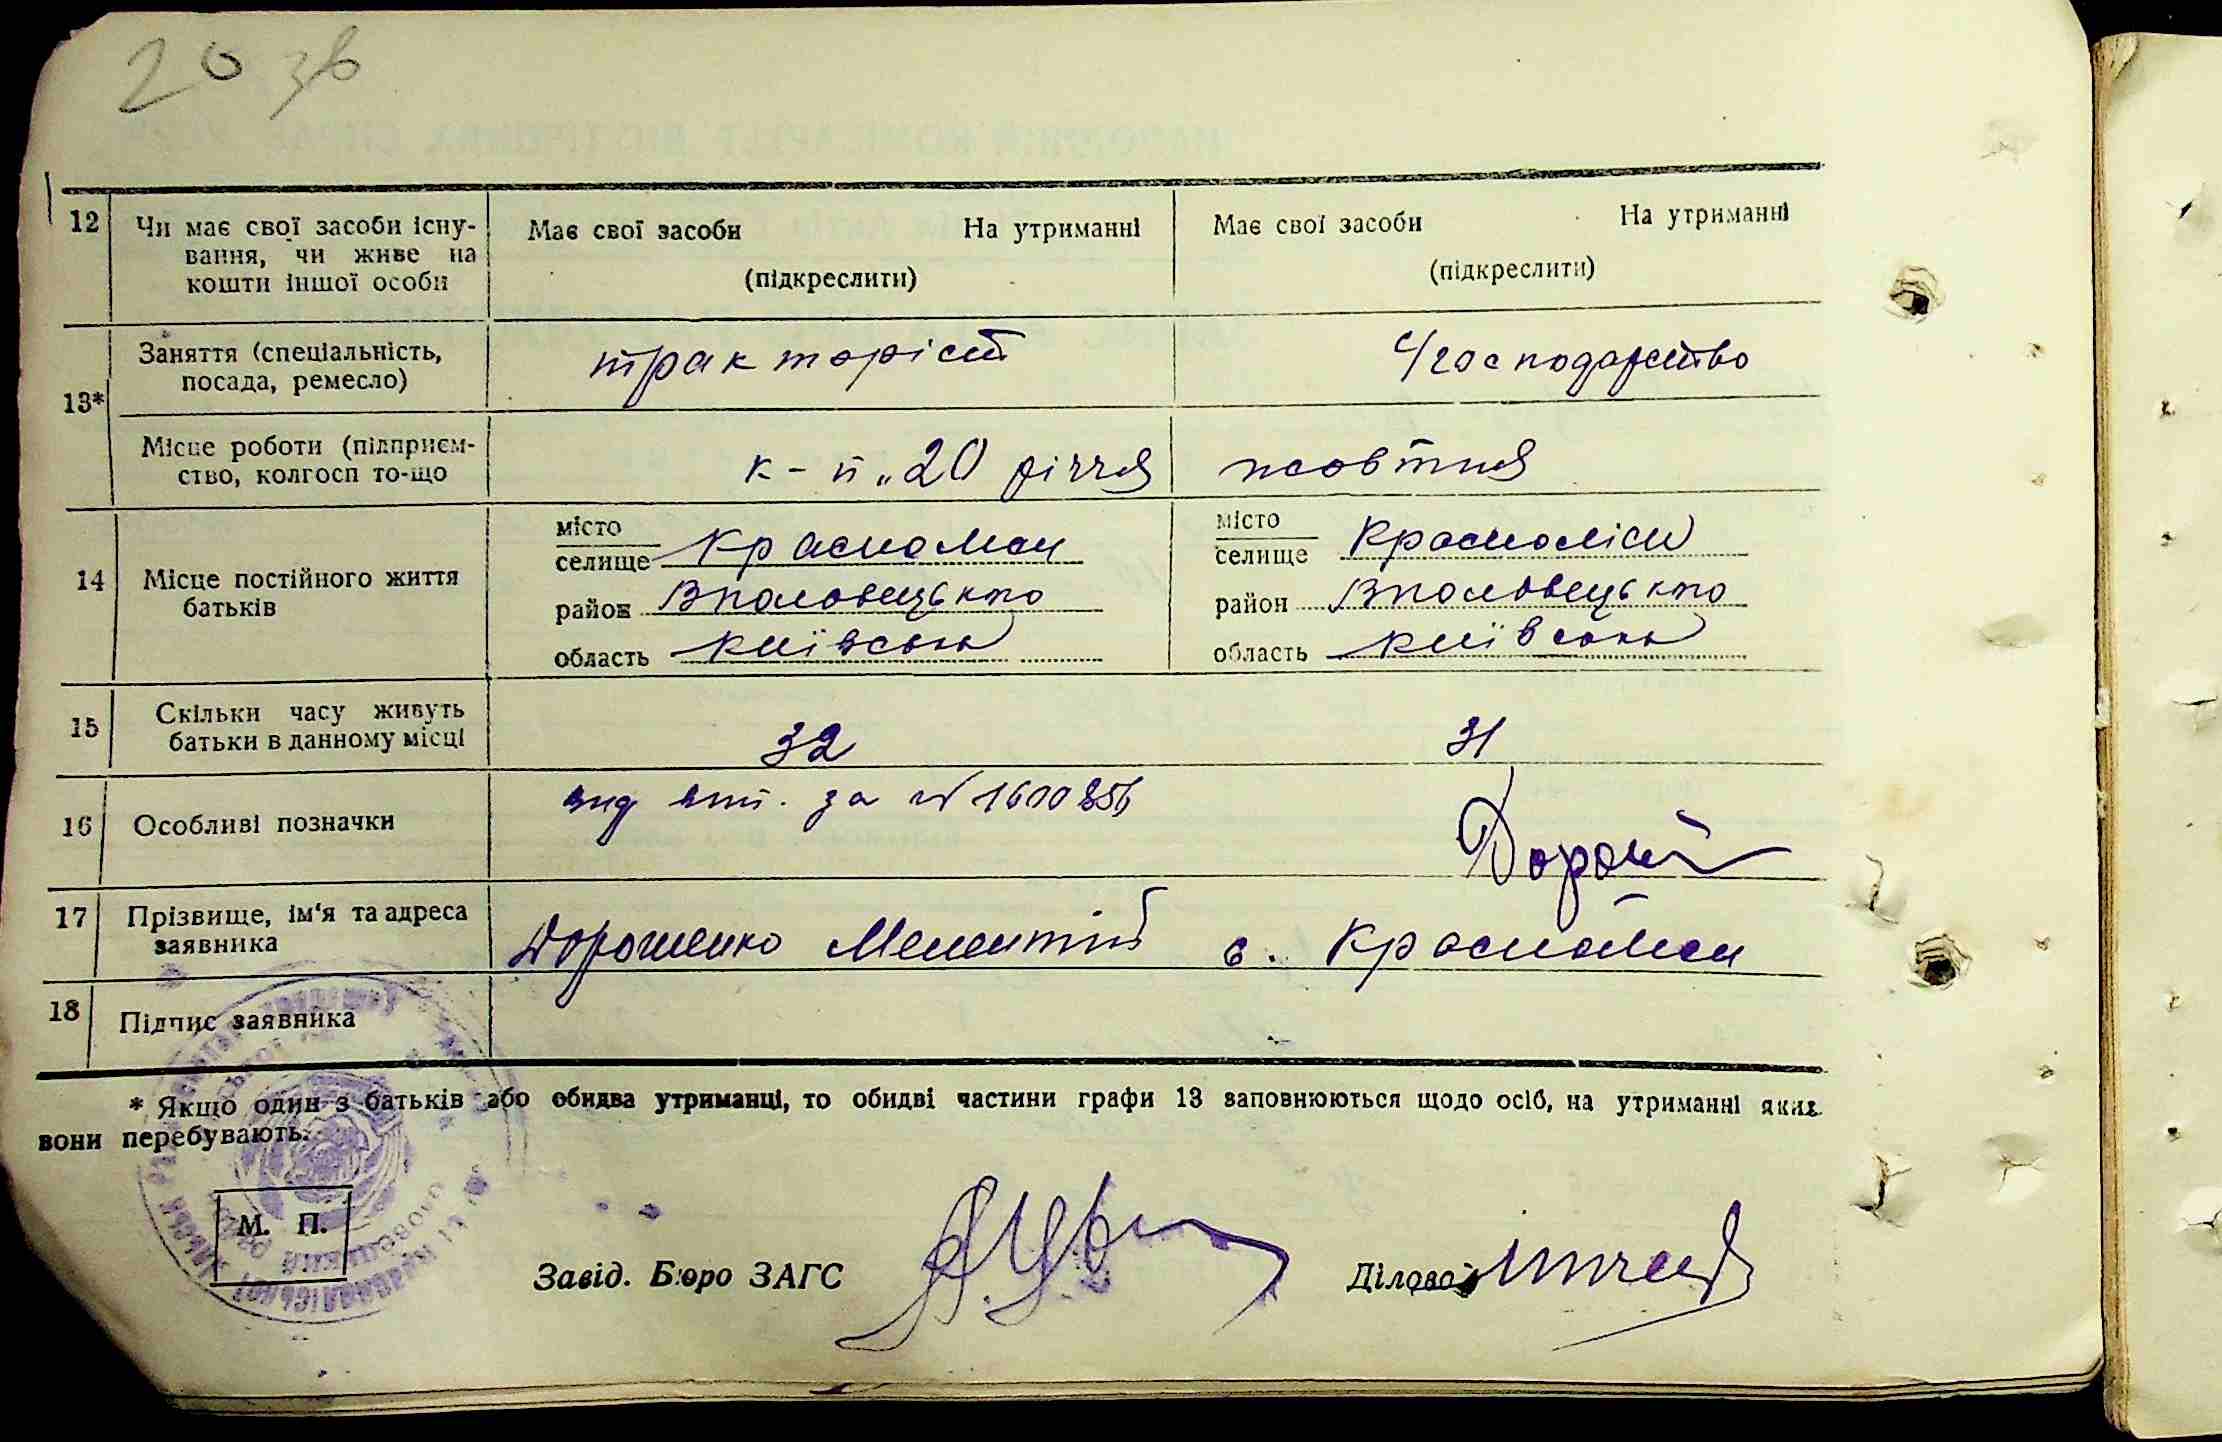 20 зв
12 Чи має свої засоби існу-
вання, чи живе на
кошти іншої особи
Має свої засоби На утриманні
(підкреслити)
Має свої засоби На утриманні
(підкреслити)
13*
Заняття (спеціальність,
посада, ремесло)
тракторіст
с/господарство
Місце роботи (підприєм-
ство, колгосп то-що
к-п „20 річчя жовтня
14 Місце постійного життя
батьків
місто
селище Красноліси
район Вполовецького
область київська
місто
селище Красноліси
район Вполовецького
область київська
15 Скільки часу живуть
батьки в данному місці
32
31
16 Особливі позначки
за № 1600856
17 Прізвище, ім'я та адреса
заявника
Дорошенко Мементій с. Красноліси
18 Підпис заявника
* Якщо один з батьків або обидва утриманці, то обидві частини графи 13 заповнюються щодо осіб, на утриманні яких
вони перебувають.
М. П.
Завід. Бюро ЗАГС
Діловод